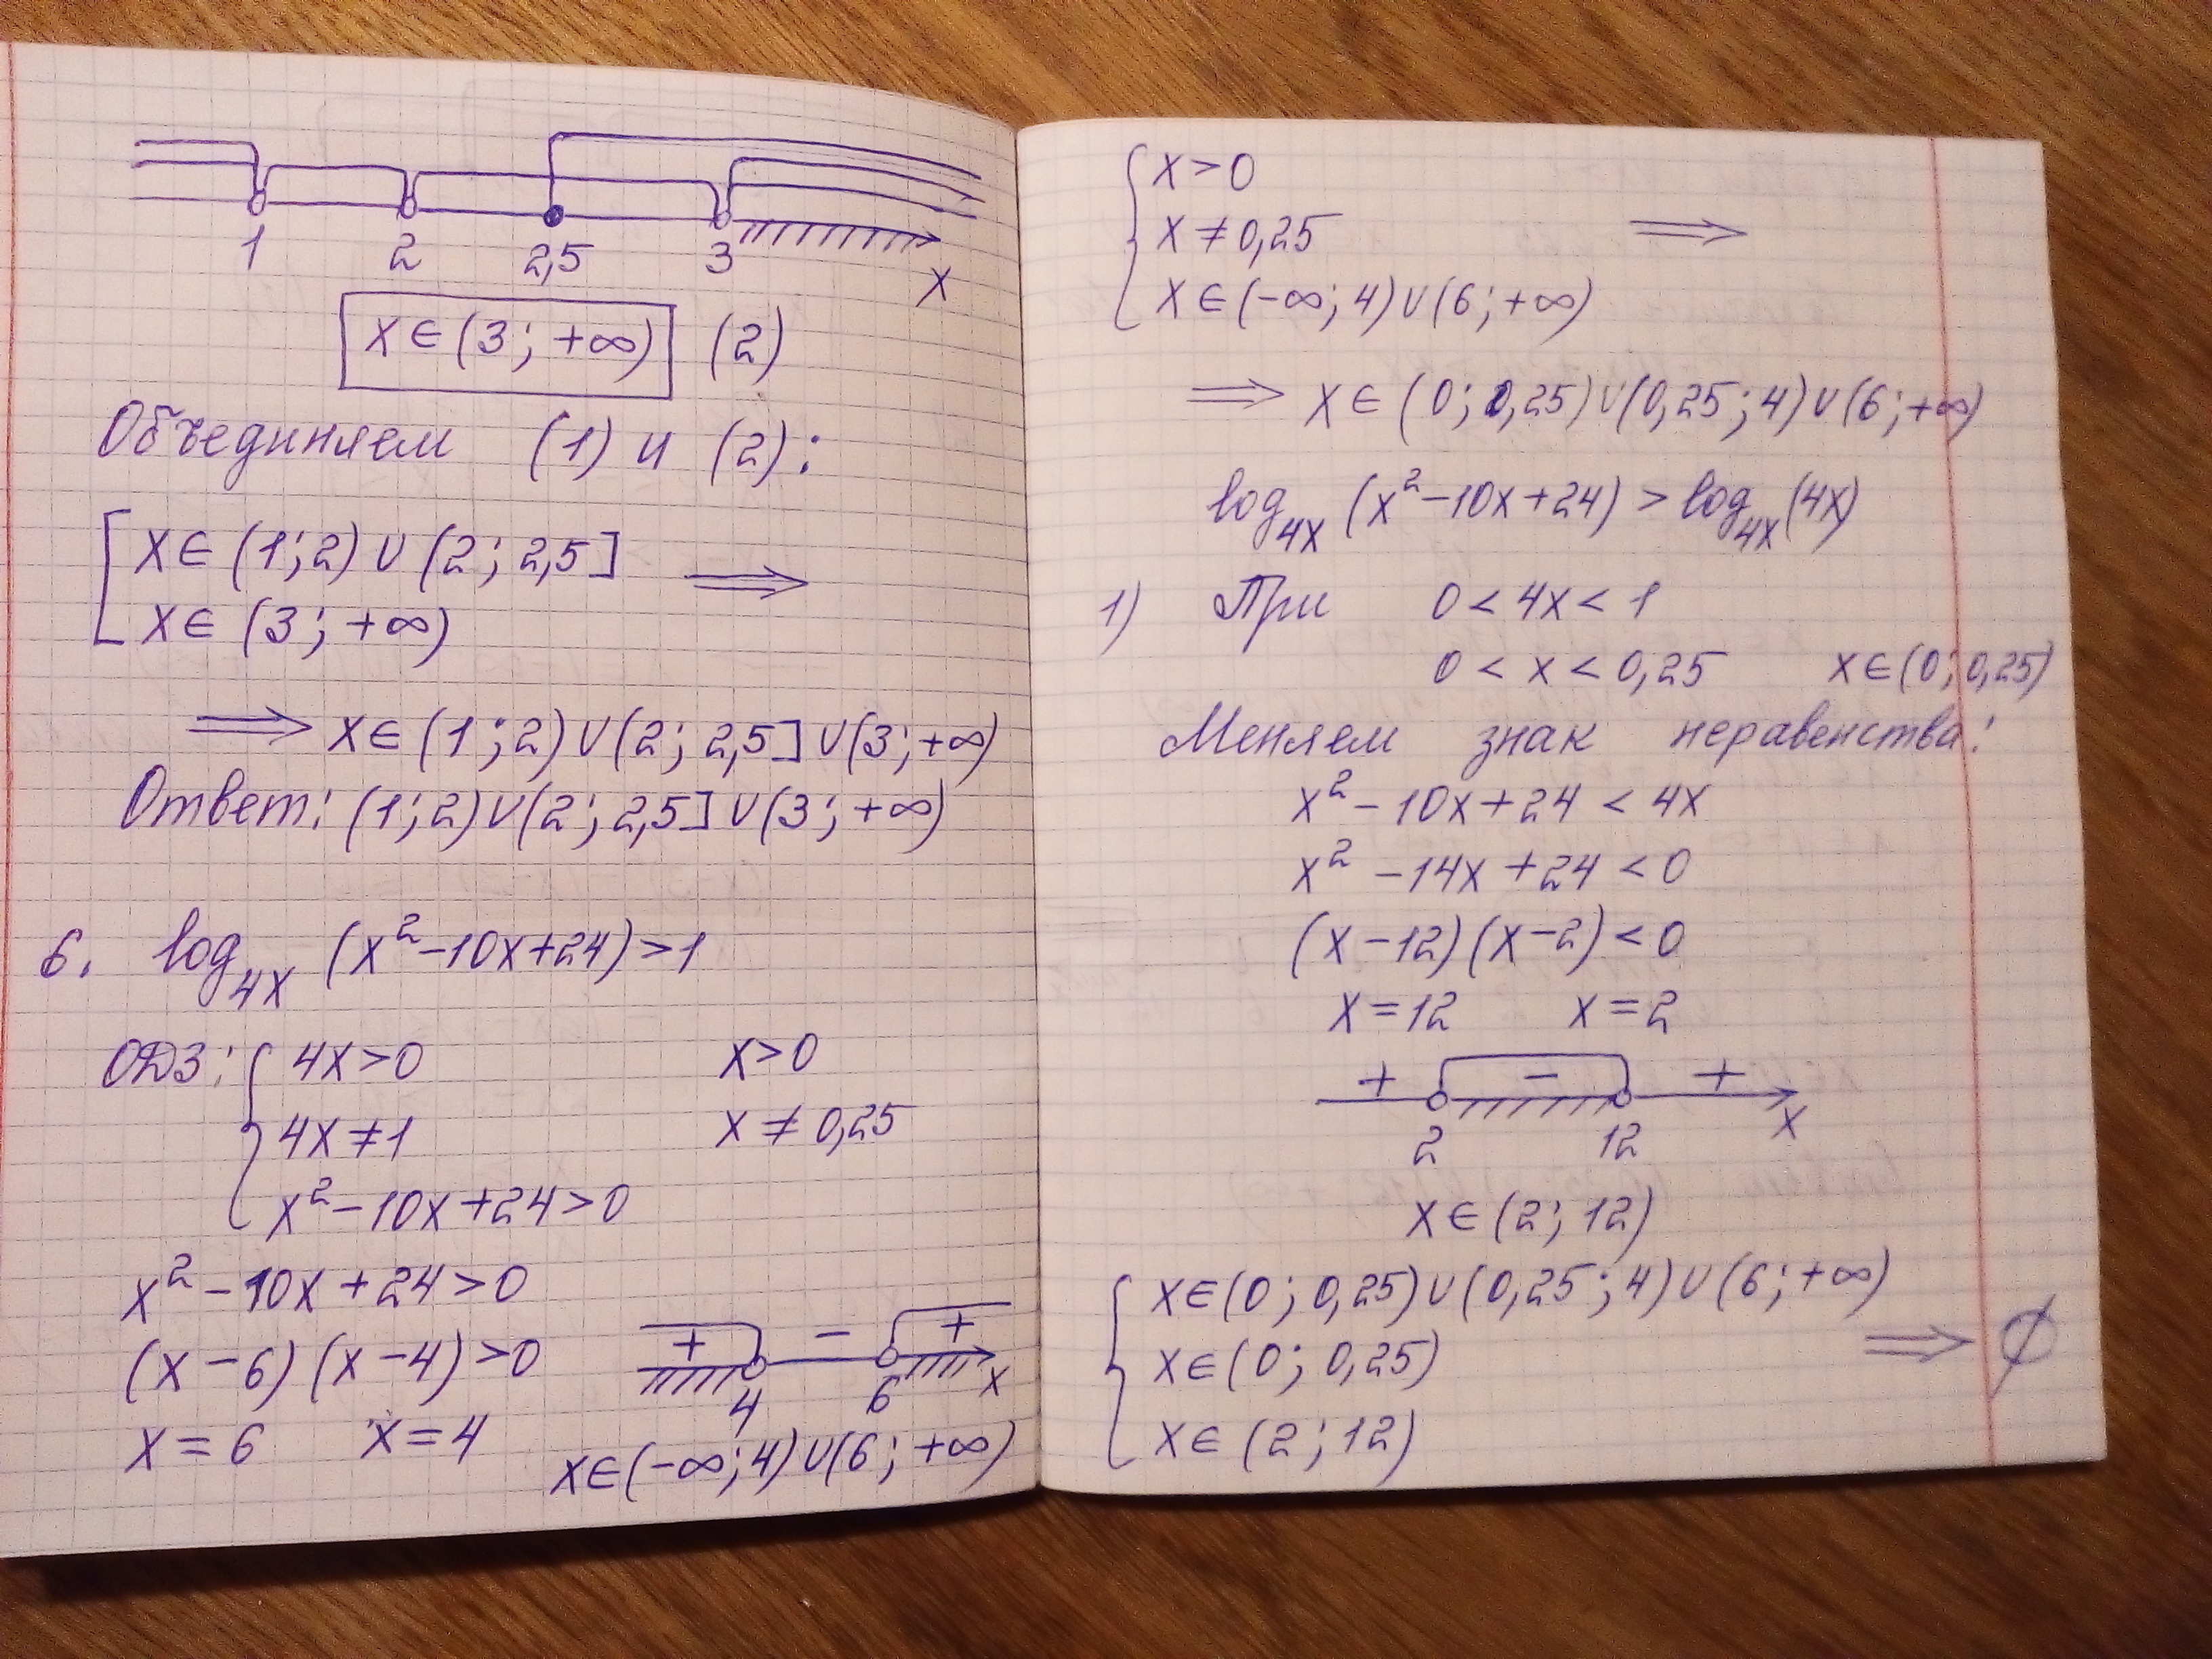 1 2 2,5 3 x
x∈(3;+∞) (2)
Объединяем (1) и (2):
x∈(1;2)∪(2;2,5] ⟹
x∈(3;+∞)
⟹ x∈(1;2)∪(2;2,5]∪(3;+∞)
Ответ: (1;2)∪(2;2,5]∪(3;+∞)
6. log₄ₓ(x²-10x+24)>1
ОДЗ: { 4x>0 x>0
4x≠1 x≠0,25
x²-10x+24>0
x²-10x+24>0
(x-6)(x-4)>0
+ - +
4 6 x
x=6 x=4
x∈(-∞;4)∪(6;+∞)
x>0
x≠0,25 ⟹
x∈(-∞;4)∪(6;+∞)
⟹ x∈(0;0,25)∪(0,25;4)∪(6;+∞)
log₄ₓ(x²-10x+24)>log₄ₓ(4x)
1) При 0<4x<1
0<x<0,25 x∈(0;0,25)
Меняем знак неравенства:
x²-10x+24<4x
x²-14x+24<0
(x-12)(x-2)<0
x=12 x=2
+ - +
2 12 x
x∈(2;12)
x∈(0;0,25)∪(0,25;4)∪(6;+∞)
x∈(0;0,25) ⟹ ∅
x∈(2;12)